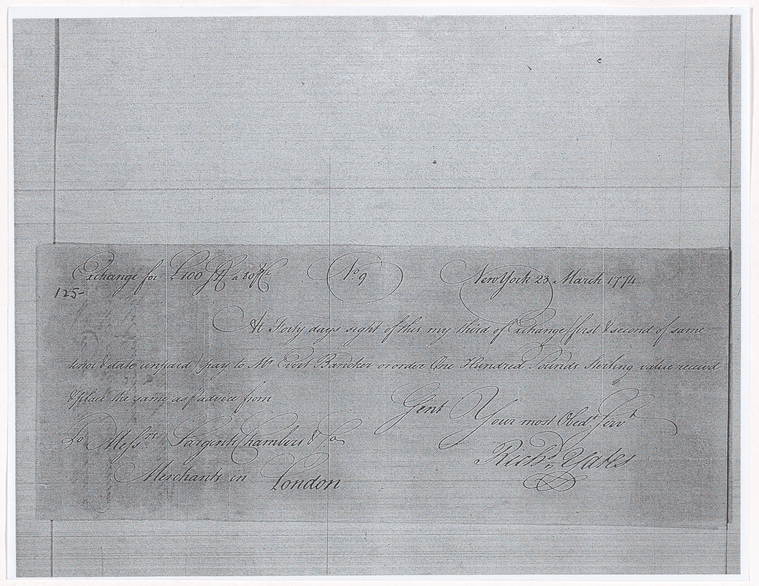 Exchange for £100 Stg a 80 pCt No 9 New York 23 March 1774
125-
At Forty days sight of this my third of Exchange first & second of same
tenor & date unpaid pay to Mr Evert Bancker or order One Hundred Pounds Sterling value received
& place the same as p advice from
Gent Your most Obedt Servt
To Messrs Sargent Chambers & Co
Richd Yates
Merchants in London